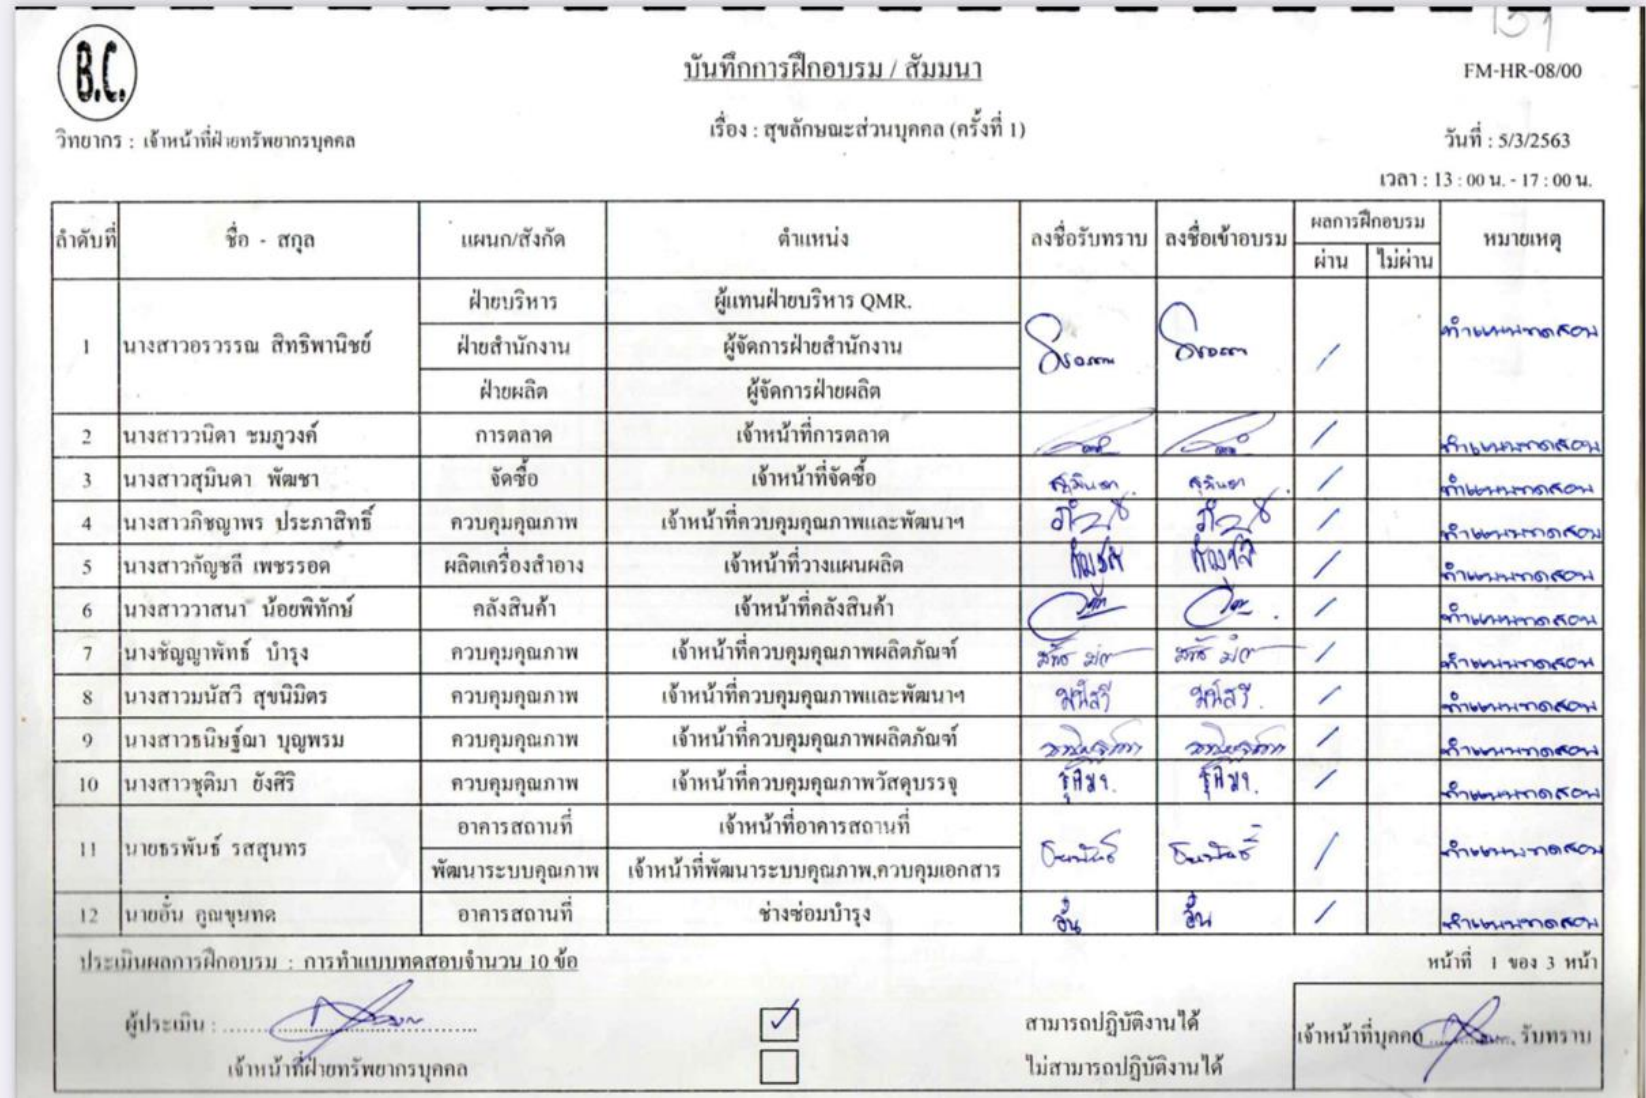 B.C.
บันทึกการฝึกอบรม / สัมมนา
FM-HR-08/00
วิทยากร : เจ้าหน้าที่ฝ่ายทรัพยากรบุคคล
เรื่อง : สุขลักษณะส่วนบุคคล (ครั้งที่ 1)
วันที่ : 5/3/2563
เวลา : 13 : 00 น. - 17 : 00 น.
ลำดับที่ ชื่อ - สกุล แผนก/สังกัด ตำแหน่ง ลงชื่อรับทราบ ลงชื่อเข้าอบรม ผลการฝึกอบรม หมายเหตุ
ผ่าน ไม่ผ่าน
ฝ่ายบริหาร ผู้แทนฝ่ายบริหาร QMR.
1 นางสาวอรวรรณ สิทธิพานิชย์ ฝ่ายสำนักงาน ผู้จัดการฝ่ายสำนักงาน / ทำแบบทดสอบ
ฝ่ายผลิต ผู้จัดการฝ่ายผลิต
2 นางสาววนิดา ชมภูวงค์ การตลาด เจ้าหน้าที่การตลาด / ทำแบบทดสอบ
3 นางสาวสุมินดา พัฒชา จัดซื้อ เจ้าหน้าที่จัดซื้อ สุมินดา สุมินดา / ทำแบบทดสอบ
4 นางสาวภิชญาพร ประภาสิทธิ์ ควบคุมคุณภาพ เจ้าหน้าที่ควบคุมคุณภาพและพัฒนาฯ / ทำแบบทดสอบ
5 นางสาวกัญชลี เพชรรอด ผลิตเครื่องสำอาง เจ้าหน้าที่วางแผนผลิต กัญชลี กัญชลี / ทำแบบทดสอบ
6 นางสาววาสนา น้อยพิทักษ์ คลังสินค้า เจ้าหน้าที่คลังสินค้า / ทำแบบทดสอบ
7 นางชัญญาพัทธ์ บำรุง ควบคุมคุณภาพ เจ้าหน้าที่ควบคุมคุณภาพผลิตภัณฑ์ / ทำแบบทดสอบ
8 นางสาวมนัสวี สุขนิมิตร ควบคุมคุณภาพ เจ้าหน้าที่ควบคุมคุณภาพและพัฒนาฯ มนัสวี มนัสวี. / ทำแบบทดสอบ
9 นางสาวธนิษฐ์ฌา บุญพรม ควบคุมคุณภาพ เจ้าหน้าที่ควบคุมคุณภาพผลิตภัณฑ์ / ทำแบบทดสอบ
10 นางสาวชุติมา ยังศิริ ควบคุมคุณภาพ เจ้าหน้าที่ควบคุมคุณภาพวัสดุบรรจุ ชุติมา. ชุติมา. / ทำแบบทดสอบ
อาคารสถานที่ เจ้าหน้าที่อาคารสถานที่
11 นายธรพันธ์ รสสุนทร / ทำแบบทดสอบ
พัฒนาระบบคุณภาพ เจ้าหน้าที่พัฒนาระบบคุณภาพ,ควบคุมเอกสาร
12 นายอั๋น คูณขุนทด อาคารสถานที่ ช่างซ่อมบำรุง อั๋น อั๋น / ทำแบบทดสอบ
ประเมินผลการฝึกอบรม : การทำแบบทดสอบจำนวน 10 ข้อ
หน้าที่ 1 ของ 3 หน้า
ผู้ประเมิน :
สามารถปฏิบัติงานได้
เจ้าหน้าที่บุคคล รับทราบ
เจ้าหน้าที่ฝ่ายทรัพยากรบุคคล
ไม่สามารถปฏิบัติงานได้